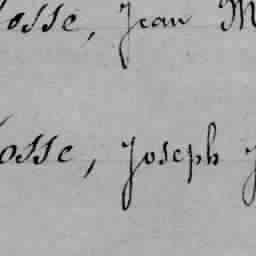 osse, Jean M
osse, Joseph J